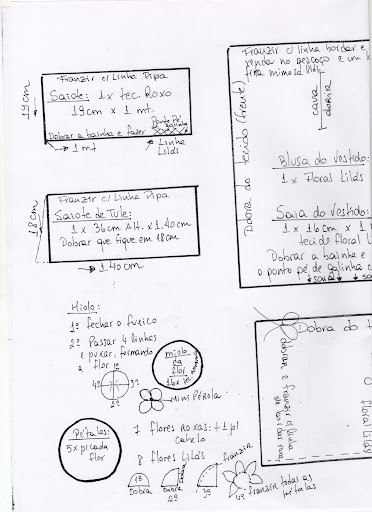 Franzir c/ Linha Pipa
Saiote: 1x tec. Roxo
19cm x 1 mt.
Dobrar a bainha e fazer
Ponto Pé
Galinha
19cm
1 mt
Linha
Lilás
Franzir c/ Linha Pipa
Saiote de Tule:
1 x 36cm Alt. x 1.40cm
Dobrar que fique em 18cm
18cm
1.40cm
Franzir c/ linha bordar e
renda no pescoço e um l
fita mimosa lilás
Dobra do tecido (frente)
cava
dobra
Blusa do vestido:
1 x Floral Lilás
Saia do vestido:
1 x 16cm x 1
tecido floral L
Dobrar a bainha e
o ponto pé de galinha c
saia
Miolo:
1º fechar o fuxico
2º Passar 4 linhas
e puxar, formando
a flor
1º
4º
3º
2º
miolo
da
flor
16x
mini Pérola
Pétalas:
5x p/ cada
flor
7 flores roxas: +1 p/
cabelo
8 flores Lilás
1º
Dobra
Dobra
2º
3º
franzir
4º franzir todas as
pétalas
Dobra do t
dobrar e franzir c/ linha
floral lilás